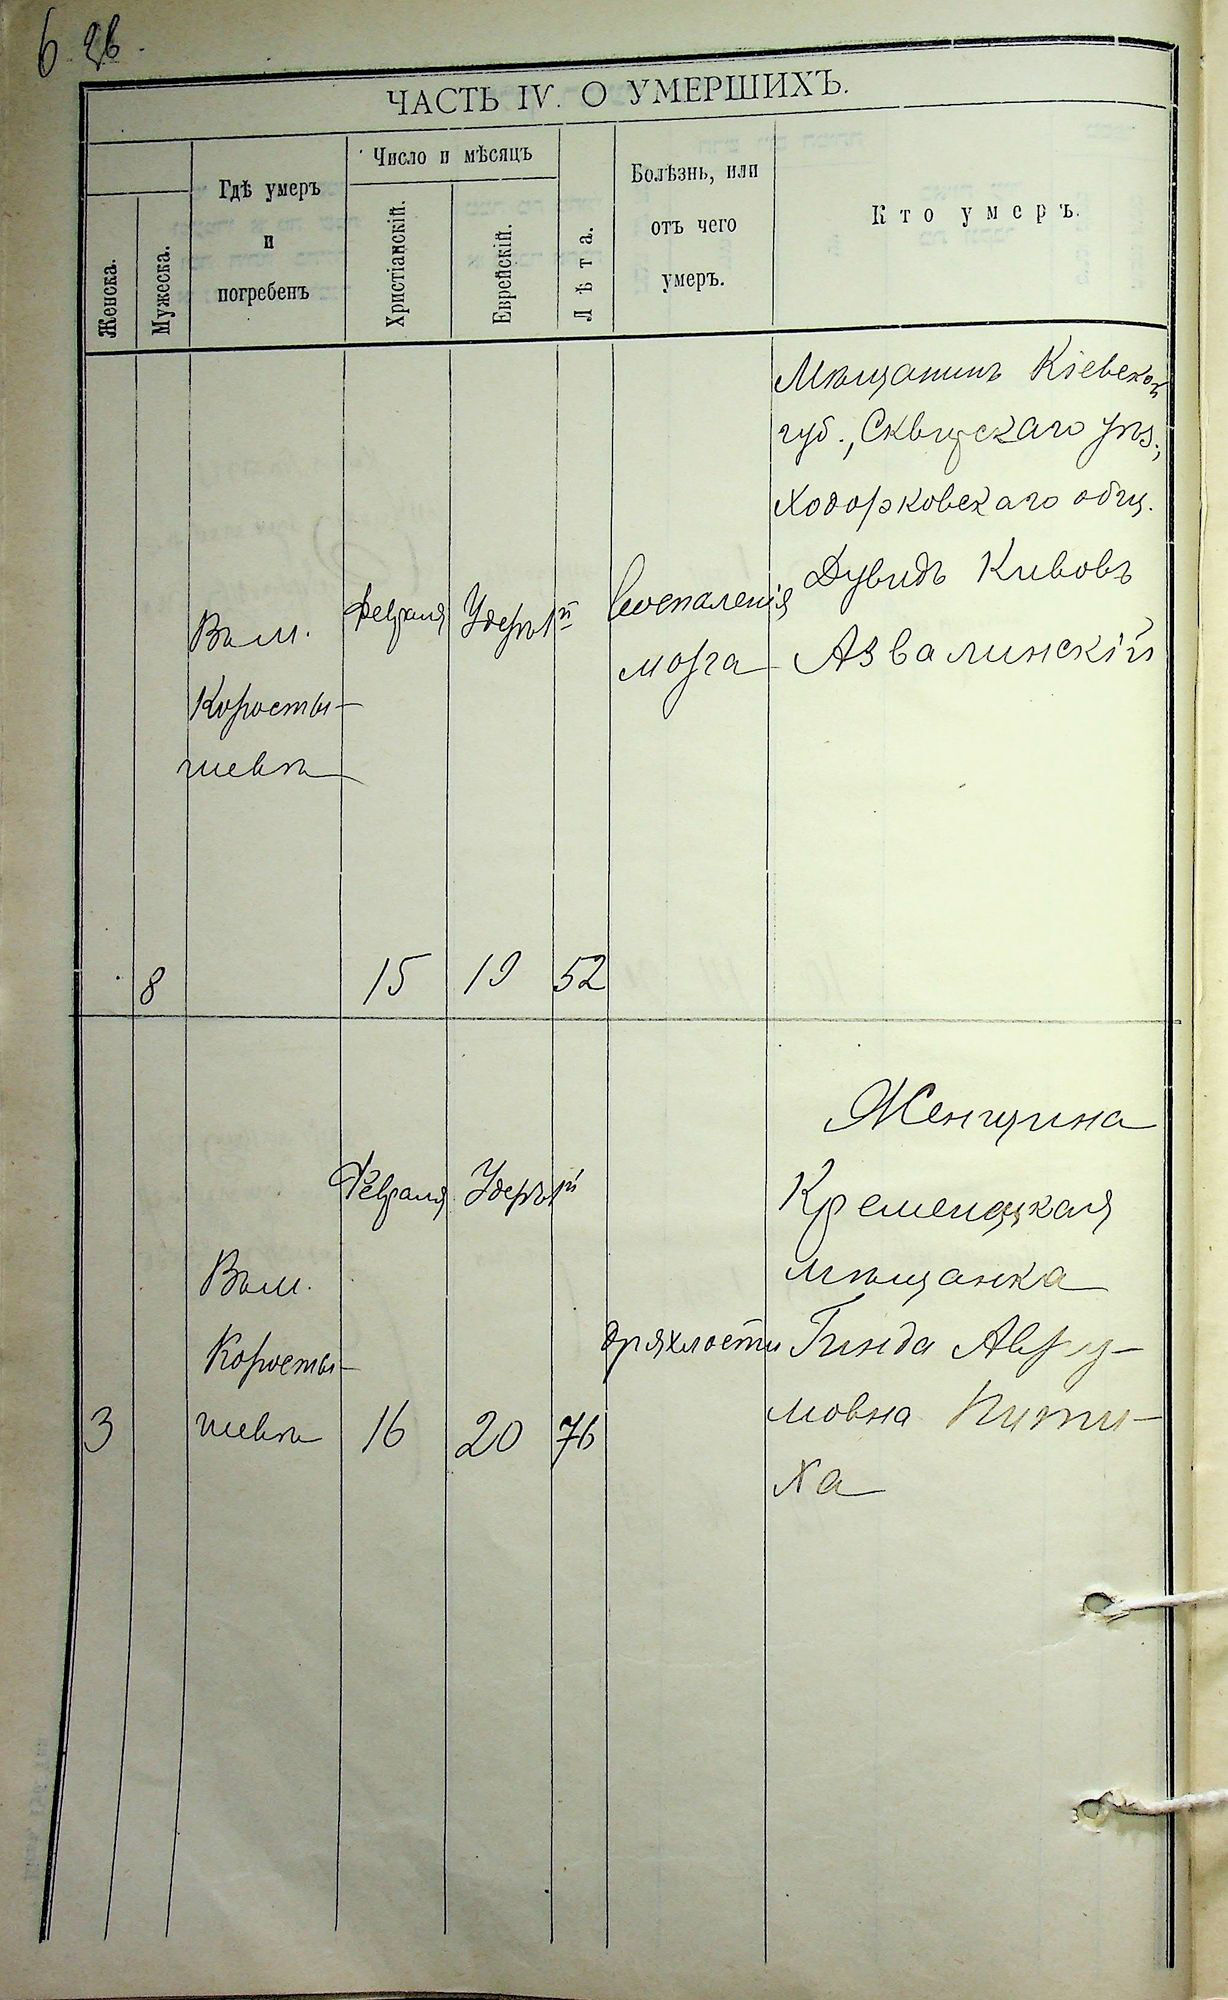 6 26.
ЧАСТЬ IV. О УМЕРШИХЪ.
Женска.
Мужеска.
Гдѣ умеръ
и
погребенъ
Число и мѣсяцъ
Христіанскій.
Еврейскій.
Лѣта.
Болѣзнь, или
отъ чего
умеръ.
Кто умеръ.
8
Въ м.
Коросты-
шевѣ
Февраля
15
Удеръ 1й
19
52
Воспаленія
мозга
Мѣщанинъ Кіевской
губ., Сквирскаго уѣз.,
Ходорковскаго общ.
Дувидъ Кивовъ
Азвалинскій
3
Въ м.
Коросты-
шевѣ
Февраля
16
Удеръ 1й
20
76
дряхлости
Женщина
Кременецкая
мѣщанка
Гинда Авру-
мовна Пити-
ха